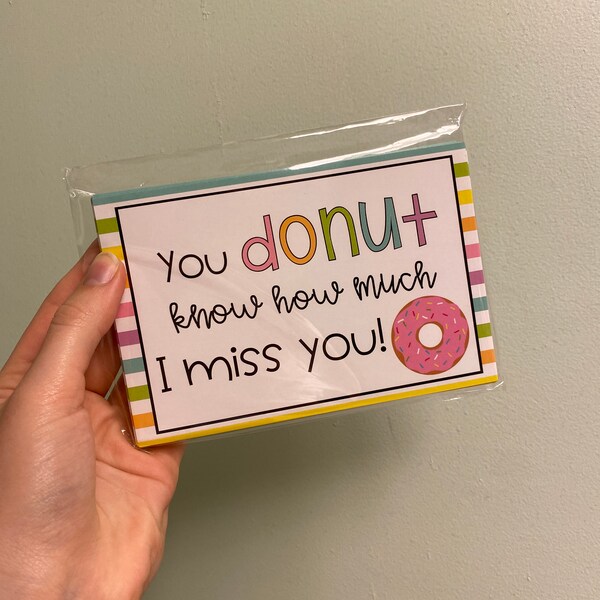 You donut
know how much
I miss you!